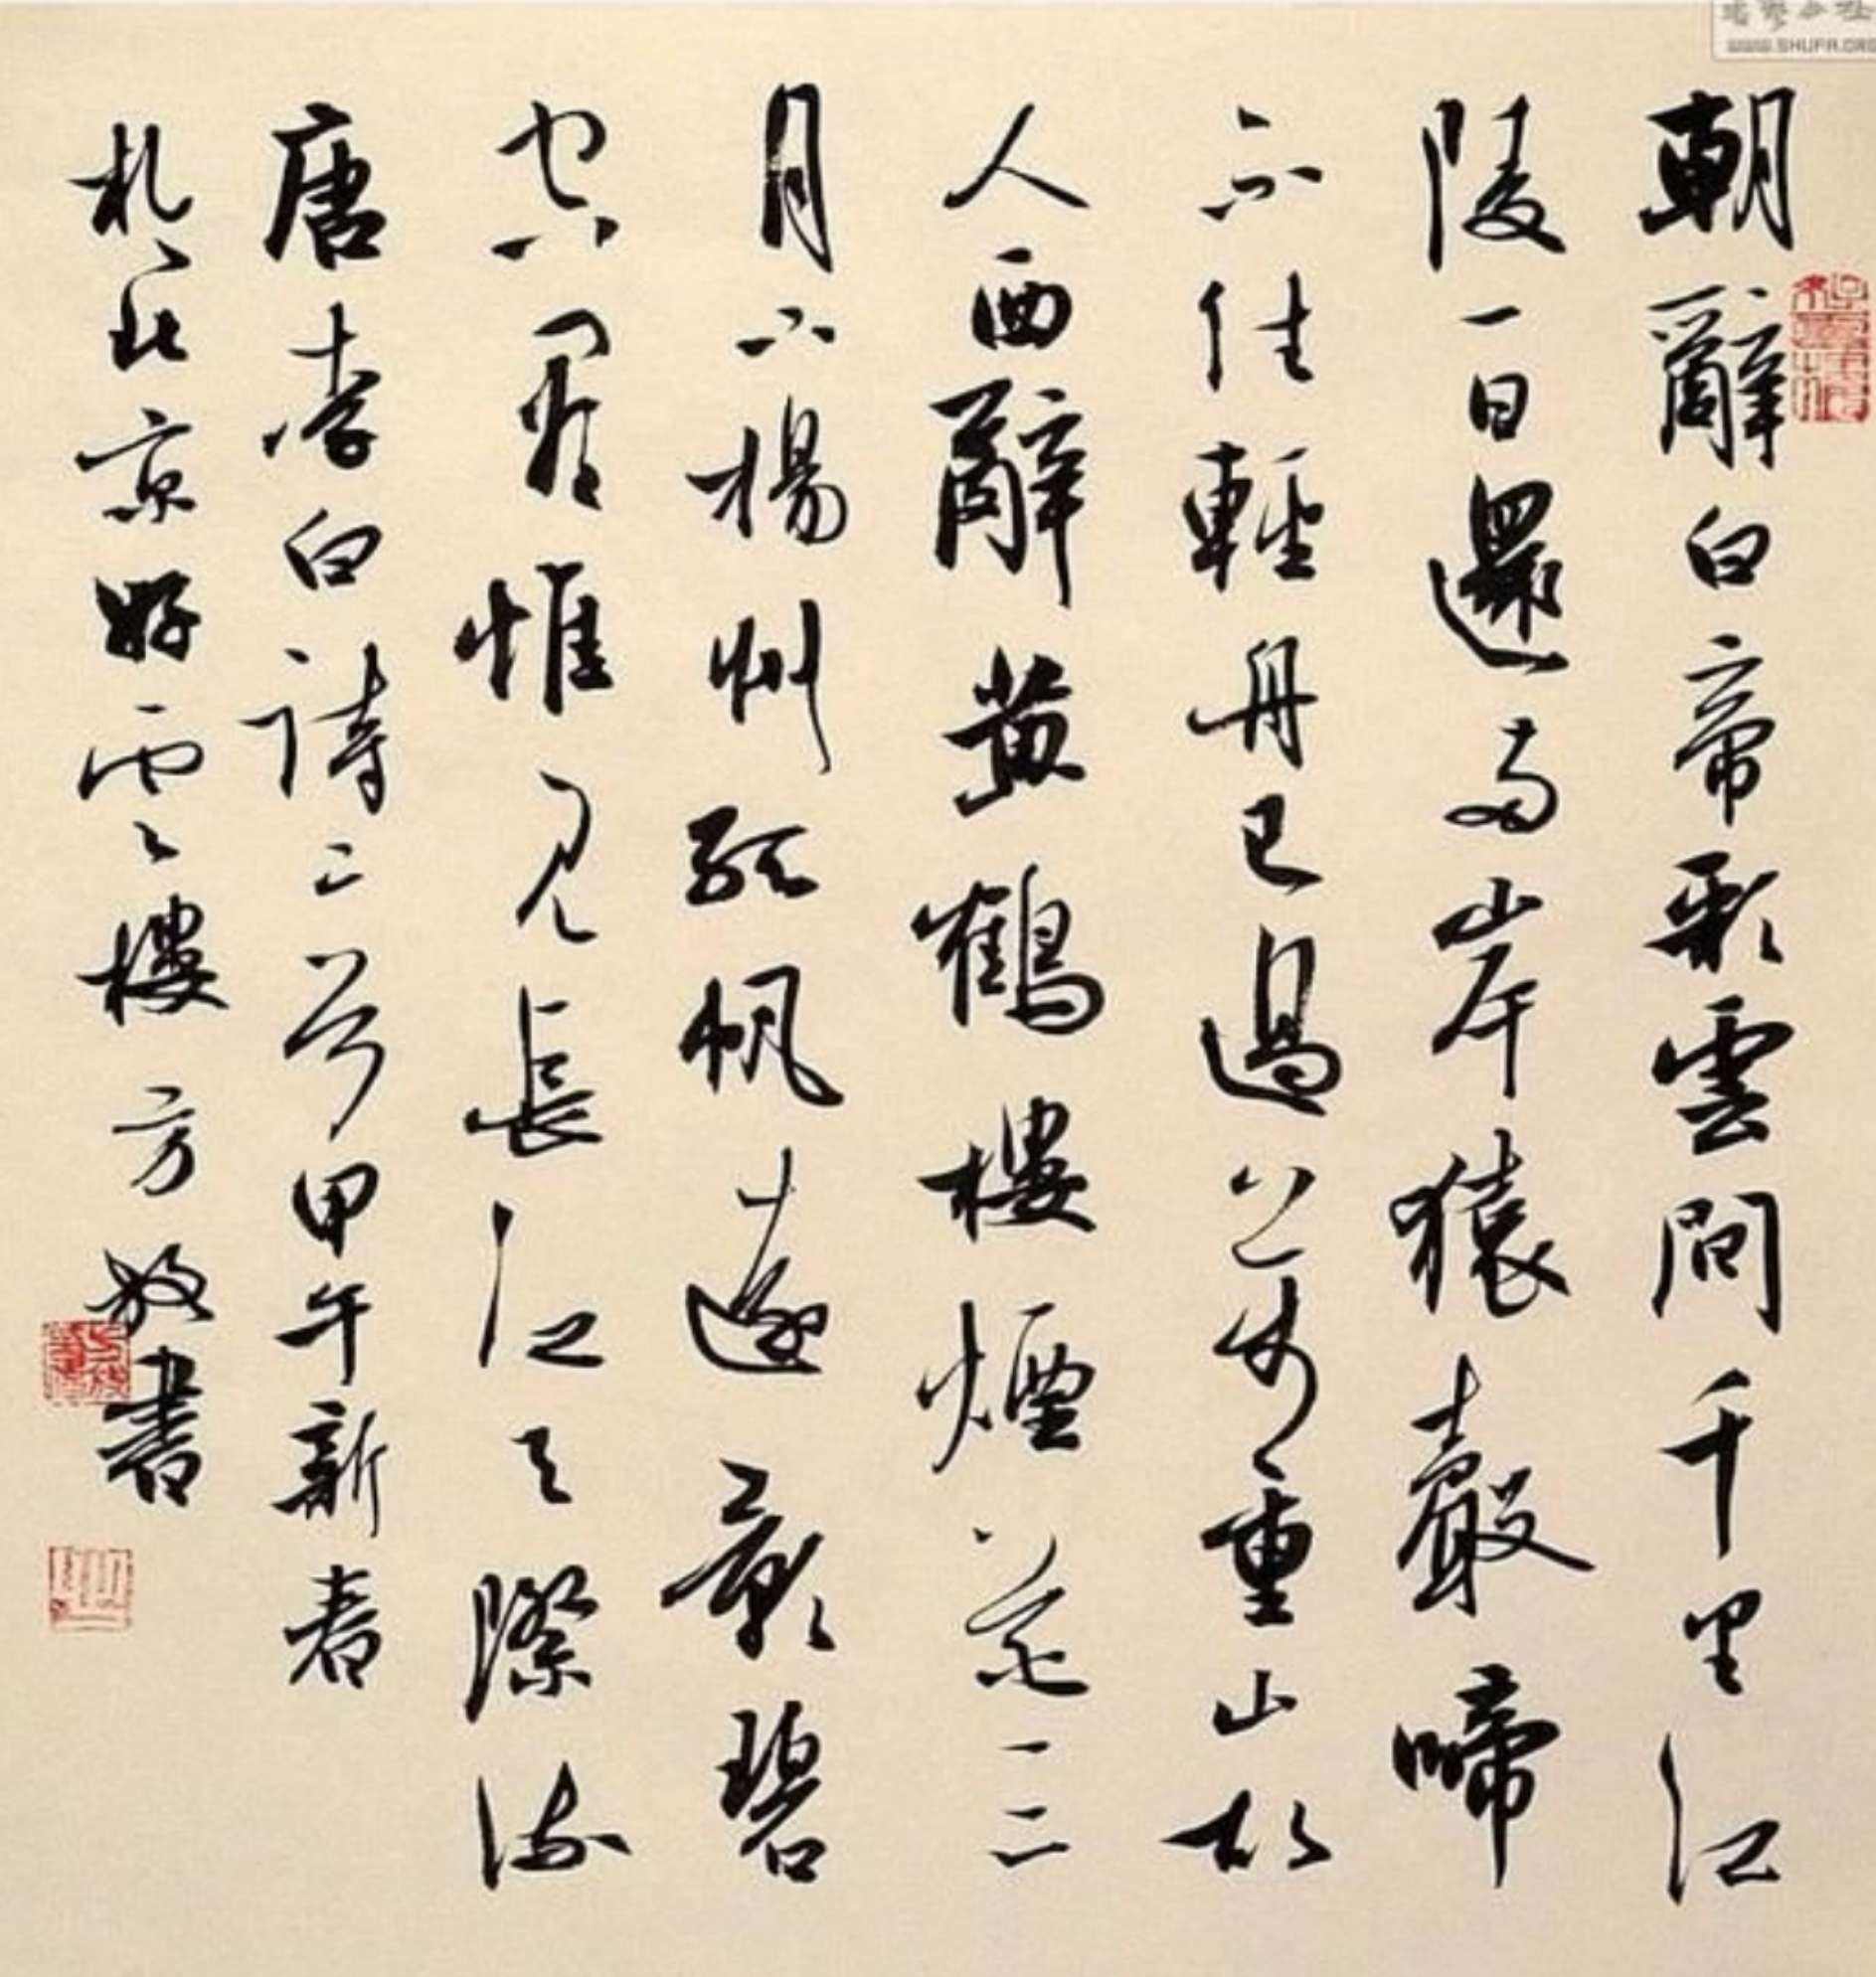 朝辭白帝彩雲間千里江
陵一日還兩岸猿聲啼
不住輕舟已過萬重山故
人西辭黃鶴樓煙花三
月下揚州孤帆遠影碧
空盡惟見長江天際流
唐李白詩二首甲午新春
於北京好雨樓方放書
WWW.SHUFA.ORG